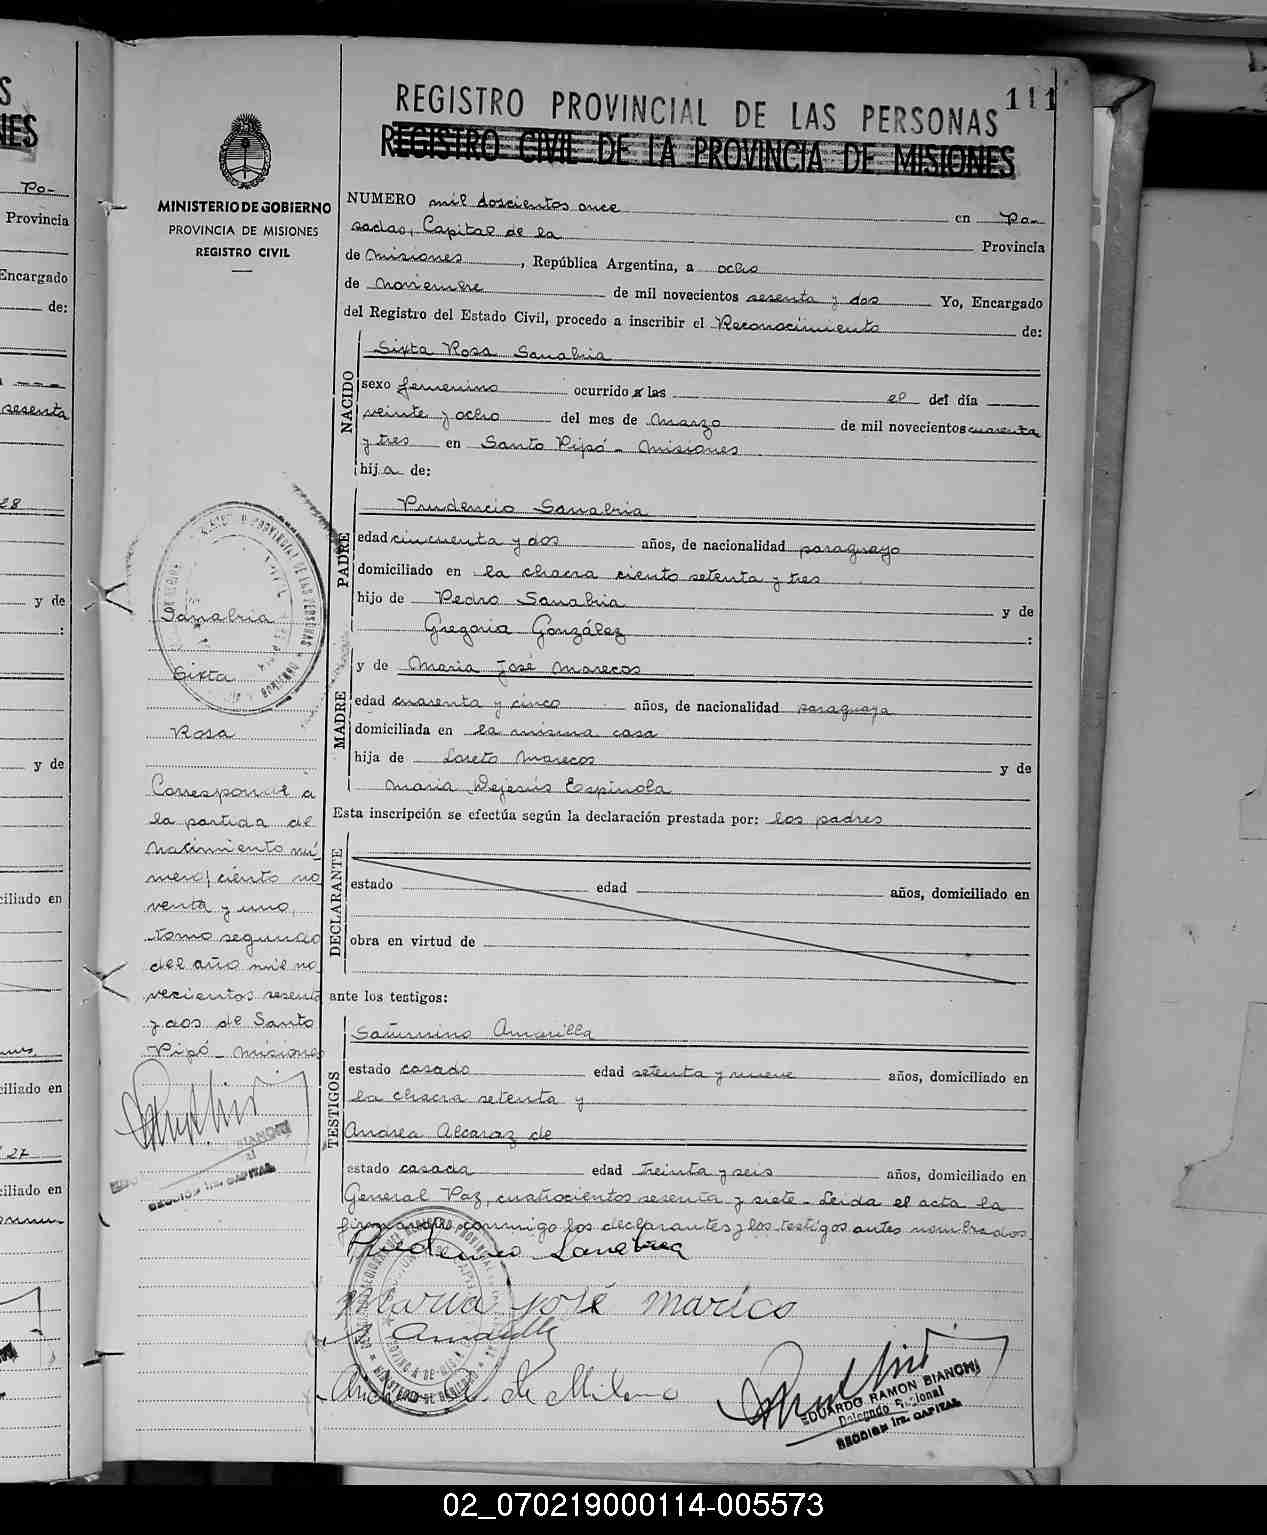 111
REGISTRO PROVINCIAL DE LAS PERSONAS
REGISTRO CIVIL DE LA PROVINCIA DE MISIONES
MINISTERIO DE GOBIERNO
PROVINCIA DE MISIONES
REGISTRO CIVIL
NUMERO mil doscientos once en Po-
sadas, Capital de la Provincia
de Misiones, República Argentina, a ocho
de noviembre de mil novecientos sesenta y dos Yo, Encargado
del Registro del Estado Civil, procedo a inscribir el Reconocimiento de:
NACIDO
Sixta Rosa Sanabria
sexo femenino ocurrido a las el del día
veinte y ocho del mes de Marzo de mil novecientos cuarenta
y tres en Santo Pipó - Misiones
hija de:
PADRE
Prudencio Sanabria
edad cincuenta y dos años, de nacionalidad paraguayo
domiciliado en la chacra ciento setenta y tres
hijo de Pedro Sanabria y de
Gregoria González :
MADRE
y de Maria José Marecos
edad cuarenta y cinco años, de nacionalidad paraguaya
domiciliada en la misma casa
hija de Loreto Marecos y de
Maria Dejesús Espinola
Esta inscripción se efectúa según la declaración prestada por: los padres
DECLARANTE
estado edad años, domiciliado en
obra en virtud de
ante los testigos:
TESTIGOS
Saturnino Amarilla
estado casado edad setenta y nueve años, domiciliado en
la chacra setenta y
Andrea Alcaraz de
estado casada edad treinta y seis años, domiciliado en
General Paz cuatrocientos sesenta y siete - Leida el acta la
firmaron conmigo los declarantes y los testigos antes nombrados
Prudencio Sanabria
Maria José Mareco
S. Amarilla
Andrea A. de Mileno
EDUARDO RAMON BIANCHI
Delegado Regional
SECCION 1ra. CAPITAL
Sanabria
Sixta
Rosa
Corresponde a
la partida de
Nacimiento nú
mero, ciento no
venta y uno,
tomo segundo
del año mil no
vecientos sesenta
y dos de Santo
Pipó - Misiones
BIANCHI
SECCION 1ra. CAPITAL
Po-
Provincia
Encargado
de:
sesenta
28
y de
:
y de
ciliado en
ciliado en
27
ciliado en
02_070219000114-005573